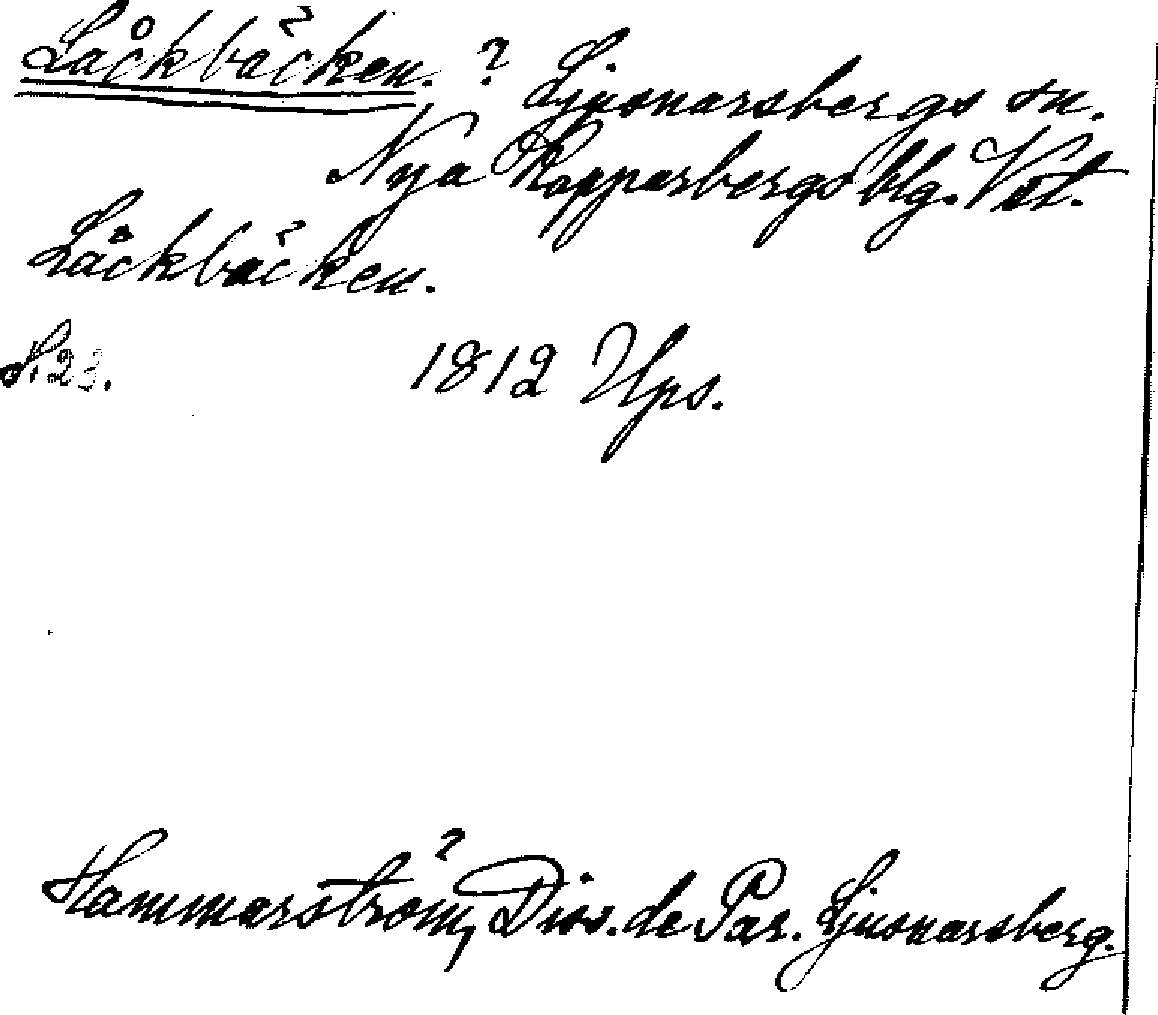 Låckbäcken. ? Ljusnarsbergs sn.
Nya Kopparbergs blg. Vst.
Låckbäcken.
S. 23. 1812 Ups.
Hammarström, Diss. de Par. Ljusnarsberg.